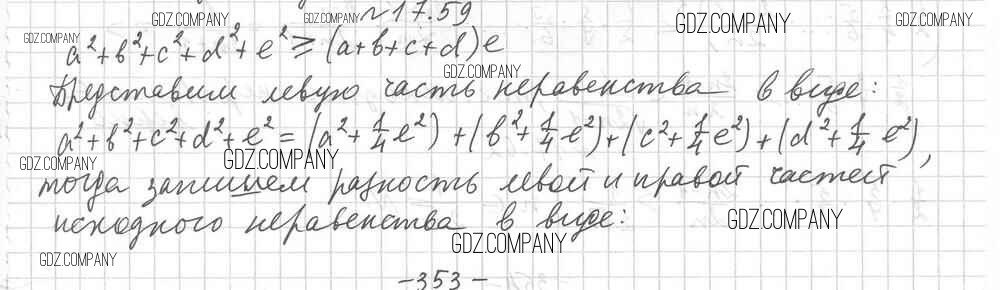 GDZ.COMPANY GDZ.COMPANY №17.59 GDZ.COMPANY GDZ.COMPANY
GDZ.COMPANY
a²+b²+c²+d²+e² ≥ (a+b+c+d)e
GDZ.COMPANY
Представим левую часть неравенства в виде:
a²+b²+c²+d²+e² = (a²+1/4 e²) + (b²+1/4 e²) + (c²+1/4 e²) + (d²+1/4 e²),
GDZ.COMPANY GDZ.COMPANY
тогда запишем разность левой и правой частей
исходного неравенства в виде:
GDZ.COMPANY GDZ.COMPANY
GDZ.COMPANY
-353-